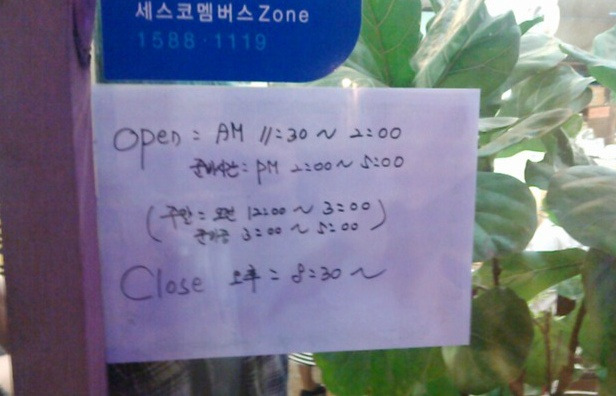 세스코멤버스Zone
1588-1119
Open = AM 11:30 ~ 2:00
준비시간 : PM 2:00 ~ 5:00
(주말 = 오전 12:00 ~ 3:00)
준비중 3:00 ~ 5:00
Close 오후 = 8:30 ~